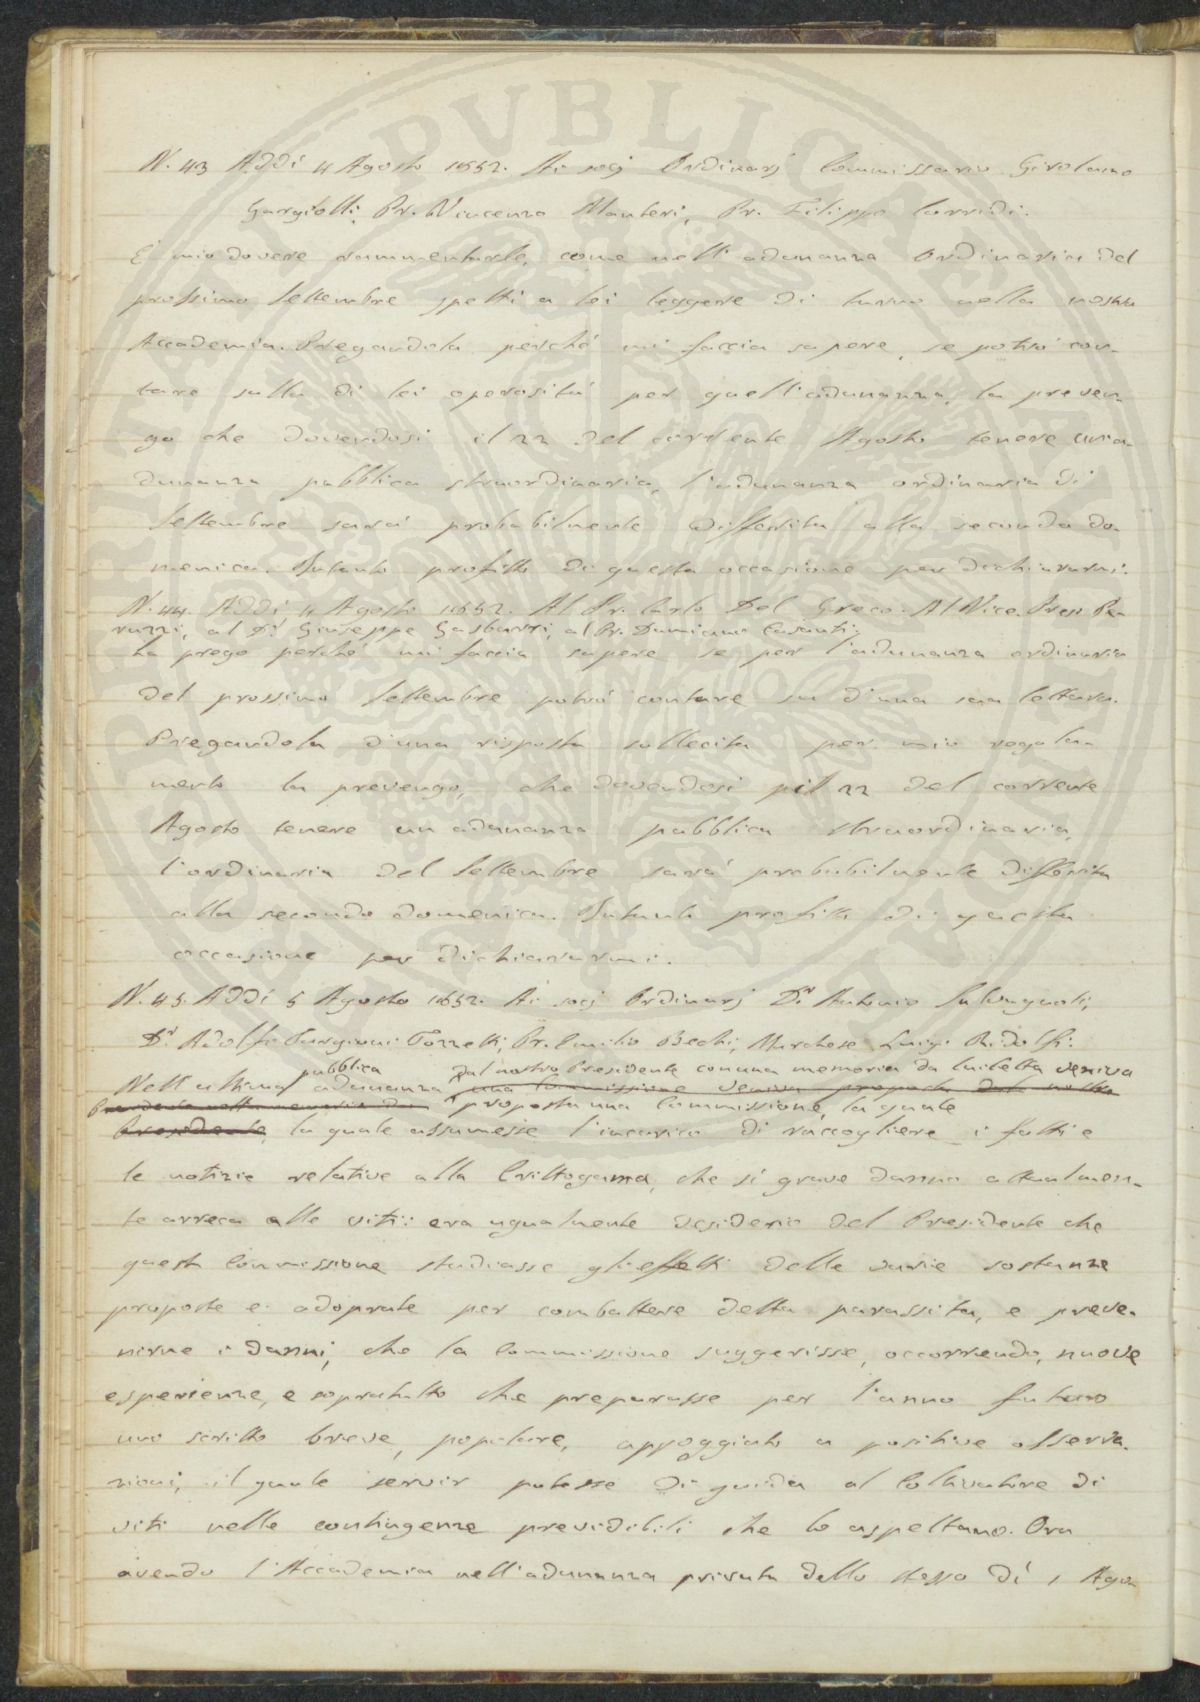 N. 43 Addì 4 Agosto 1852. Ai socj Ordinarj Commissario Girolamo
Gargiolli, Pr. Vincenzo Manteri, Pr. Filippo Corridi.
È mio dovere rammentarle, come nell'adunanza ordinaria del
prossimo Settembre spetti a lei leggere di turno nella nostra
Accademia. Pregandola perché mi faccia sapere, se potrò con-
tare sulla di lei operosità per quell'adunanza, la preven-
go che dovendosi il 22 del corrente Agosto tenere un'a-
dunanza pubblica straordinaria, l'adunanza ordinaria di
Settembre sarà probabilmente differita alla seconda do-
menica. Intanto profitto di questa occasione per dichiararmi.
N. 44. Addì 4 Agosto 1852. Al Pr. Carlo Del Greco. Al Vice. Pres. Pe-
ruzzi, al Dr. Giuseppe Gasbarri, al Pr. Damiano Casanti.
La prego perché mi faccia sapere se per l'adunanza ordinaria
del prossimo Settembre potrò contare su d'una sua lettura.
Pregandola d'una risposta sollecita per mio regola-
mento la prevengo, che dovendosi pel 22 del corrente
Agosto tenere un adunanza pubblica straordinaria,
l'ordinaria del Settembre sarà probabilmente differita
alla seconda domenica. Intanto profitto di questa
occasione per dichiararmi.
N. 45. Addì 5 Agosto 1852. Ai socj Ordinarj Dr. Antonio Salvagnoli,
Dr. Adolfo Targioni Tozzetti, Pr. Emilio Bechi, Marchese Luigi Ridolfi.
pubblica dal nostro Presidente con una memoria da lui letta veniva
Nell'ultima adunanza una Commissione veniva proposta dal nostro
Presidente nella memoria da proposta una Commissione, la quale
Presidente, la quale assumesse l'incarico di raccogliere i fatti e
le notizie relative alla Crittogama, che sì grave danno attualmen-
te arreca alle viti: era ugualmente desiderio del Presidente che
questa Commissione studiasse gli effetti delle varie sostanze
proposte e adoprate per combattere detta parassita, e preve-
nirne i danni, che la Commissione suggerisse, occorrendo, nuove
esperienze, e sopratutto che preparasse per l'anno futuro
uno scritto breve, popolare, appoggiato a positive osserva-
zioni, il quale servir potesse di guida al Coltivatore di
viti nelle contingenze previdibili che lo aspettano. Ora
avendo l'Accademia nell'adunanza privata dello stesso dì 1 Ago-